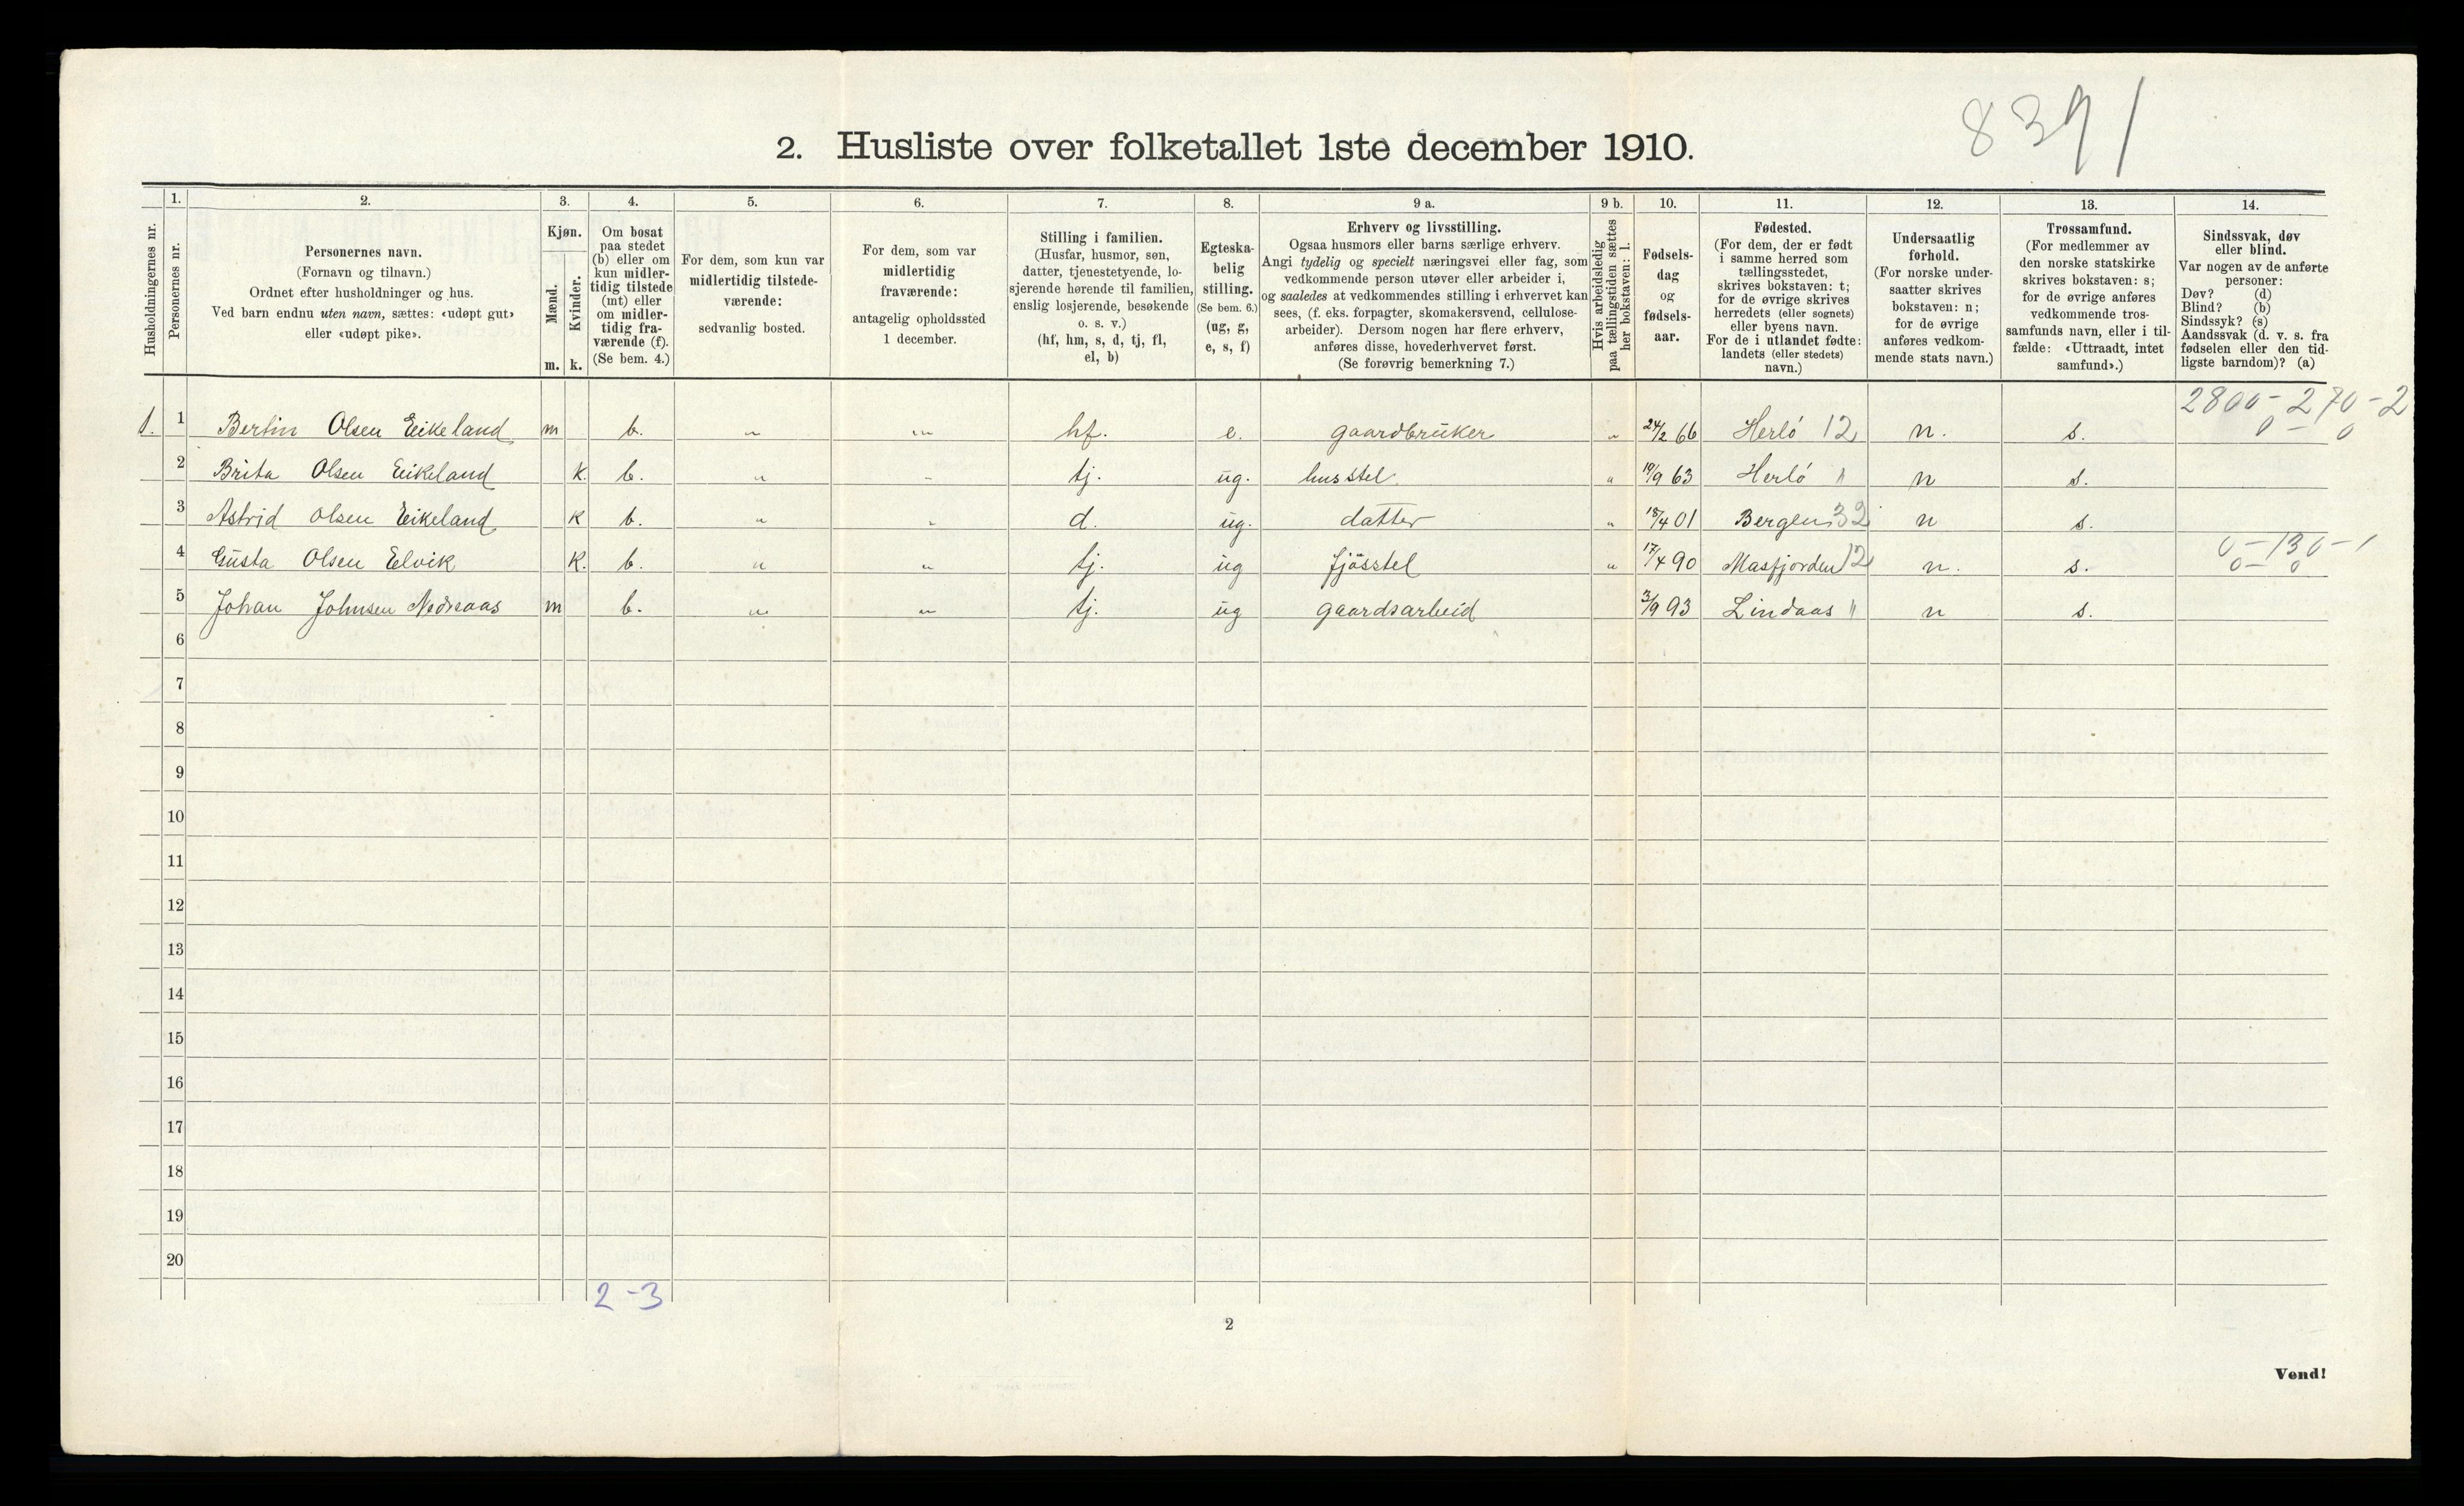 8391
2. Husliste over folketallet 1ste december 1910.
Husholdningernes nr.
1.
Personernes nr.
2.
Personernes navn.
(Fornavn og tilnavn.)
Ordnet efter husholdninger og hus.
Ved barn endnu uten navn, sættes: «udøpt gut»
eller «udøpt pike».
3.
Kjøn.
Mænd.
Kvinder.
m. k.
4.
Om bosat
paa stedet
(b) eller om
kun midler-
tidig tilstede
(mt) eller
om midler-
tidig fra-
værende (f).
(Se bem. 4.)
5.
For dem, som kun var
midlertidig tilstede-
værende:
sedvanlig bosted.
6.
For dem, som var
midlertidig
fraværende:
antagelig opholdssted
1 december.
7.
Stilling i familien.
(Husfar, husmor, søn,
datter, tjenestetyende, lo-
sjerende hørende til familien,
enslig losjerende, besøkende
o. s. v.)
(hf, hm, s, d, tj, fl,
el, b)
8.
Egteska-
belig
stilling.
(Se bem. 6.)
(ug, g,
e, s, f)
9 a.
Erhverv og livsstilling.
Ogsaa husmors eller barns særlige erhverv.
Angi tydelig og specielt næringsvei eller fag, som
vedkommende person utøver eller arbeider i,
og saaledes at vedkommendes stilling i erhvervet kan
sees, (f. eks. forpagter, skomakersvend, cellulose-
arbeider). Dersom nogen har flere erhverv,
anføres disse, hovederhvervet først.
(Se forøvrig bemerkning 7.)
9 b.
Hvis arbeidsledig
paa tællingstiden sættes
her bokstaven: l.
10.
Fødsels-
dag
og
fødsels-
aar.
11.
Fødested.
(For dem, der er født
i samme herred som
tællingsstedet,
skrives bokstaven: t;
for de øvrige skrives
herredets (eller sognets)
eller byens navn.
For de i utlandet fødte:
landets (eller stedets)
navn.)
12.
Undersaatlig
forhold.
(For norske under-
saatter skrives
bokstaven: n;
for de øvrige
anføres vedkom-
mende stats navn.)
13.
Trossamfund.
(For medlemmer av
den norske statskirke
skrives bokstaven: s;
for de øvrige anføres
vedkommende tros-
samfunds navn, eller i til-
fælde: «Uttraadt, intet
samfund».)
14.
Sindssvak, døv
eller blind.
Var nogen av de anførte
personer:
Døv? (d)
Blind? (b)
Sindssyk? (s)
Aandssvak (d. v. s. fra
fødselen eller den tid-
ligste barndom)? (a)
2800 - 270 - 2
0 - 0
1. 1 Bertin Olsen Eikeland m b. " " hf. e. gaardbruker " 24/2 66 Herlö 12 n. s.
2 Brita Olsen Eikeland k. b. " " tj. ug. husstel. " 19/9 63 Herlö " n s.
3 Astrid Olsen Eikeland k b. " " d. ug. datter " 18/4 01 Bergen 32 n s.
0 - 130 - 1
0 - 0
4 Gusta Olsen Elvik k. b. " " tj. ug fjösstel " 17/4 90 Masfjorden 12 n. s.
5 Johan Johnsen Nedreaas m b. " " tj. ug gaardsarbeid 3/9 93 Lindaas " n s.
6
7
8
9
10
11
12
13
14
15
16
17
18
19
20
2 - 3
2
Vend!